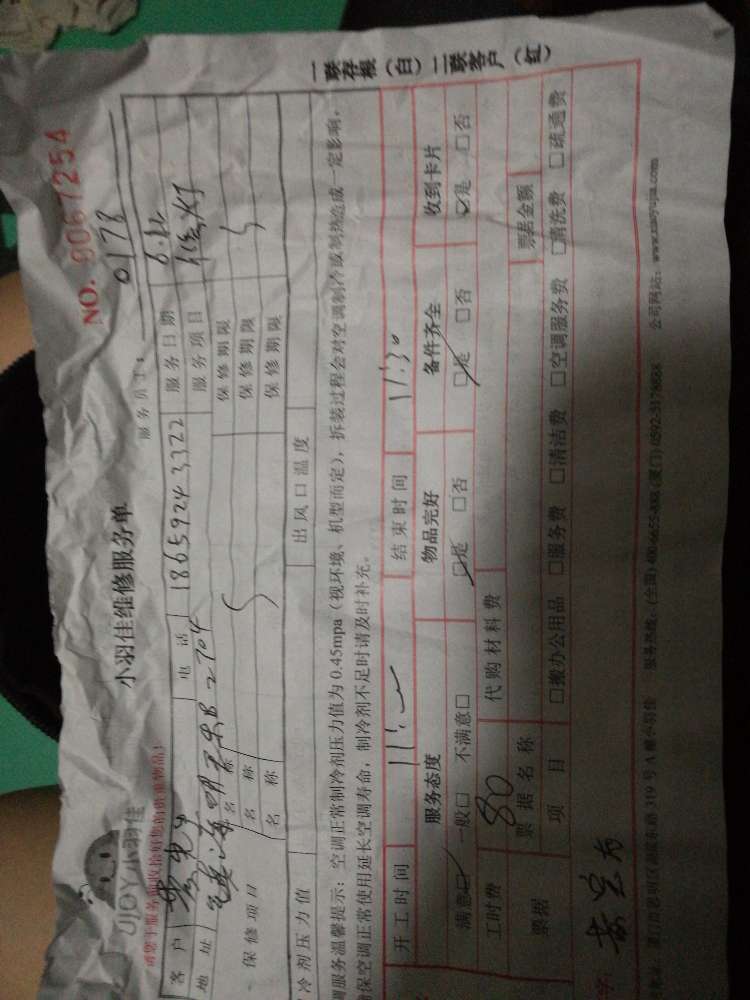 一联存根（白）二联客户（红）
NO. 9067254
UJOY小羽佳
小羽佳维修服务单
服务员工： 0178
请您于服务前收拾好您的贵重物品！
客户 电话 18659243322 服务日期
地址 2704 服务项目 修灯
保修项目 名称 保修期限
名称 保修期限
名称 保修期限
冷剂压力值 出风口温度
调服务温馨提示：空调正常制冷剂压力值为0.45mpa（视环境、机型而定），拆装过程会对空调制冷或制热造成一定影响，
保空调正常使用延长空调寿命，制冷剂不足时请及时补充。
开工时间 结束时间 11:30
服务态度 物品完好 备件齐全 收到卡片
满意□ 一般□ 不满意□ □是 □否 □是 □否 □是 □否
工时费 80 代购材料费
票据 票据名称 票据金额
项目 □搬办公用品 □服务费 □清洁费 □空调服务费 □清洗费 □疏通费
字：
厦门市思明区湖滨东路319号A幢小羽佳 服务热线：(全国)400-6655-888 (厦门)0592-5178888 公司网站：www.xiaoyujia.com